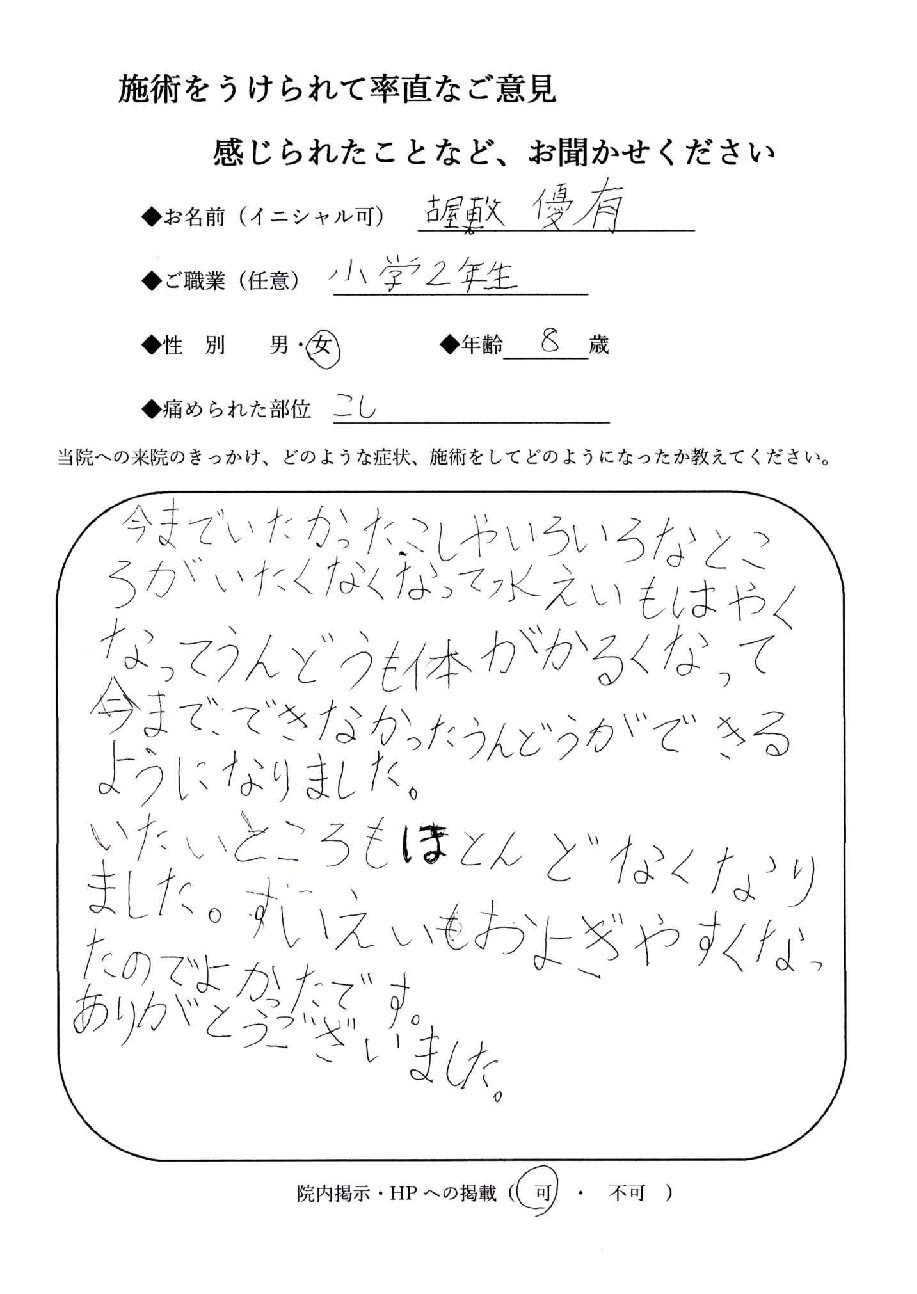 施術をうけられて率直なご意見
感じられたことなど、お聞かせください
◆お名前（イニシャル可） 胡屋敷 優有
◆ご職業（任意） 小学2年生
◆性 別 男・女 ◆年齢 8 歳
◆痛められた部位 こし
当院への来院のきっかけ、どのような症状、施術をしてどのようになったか教えてください。
今までいたかったこしやいろいろなとこ
ろがいたくなくなって水えいもはやく
なってうんどうも体がかるくなって
今まで、できなかったうんどうができる
ようになりました。
いたいところもほとんどなくなり
ました。すいえいもおよぎやすくなっ
たのでよかったです。
ありがとうございました。
院内掲示・HPへの掲載（ 可 ・ 不可 ）